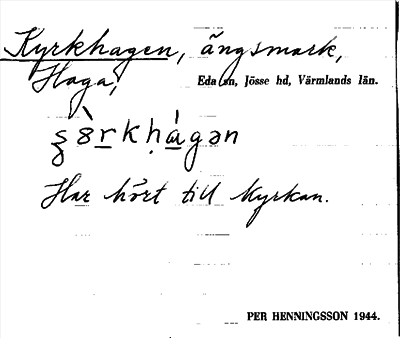 Kyrkhagen, ängsmark,
Haga, Eda sn, Jösse hd, Värmlands län.
Har hört till kyrkan.
PER HENNINGSSON 1944.